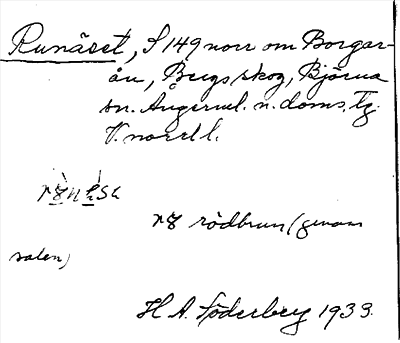 Runäset, S 149 norr om Borgar-
ån, Bergsskog, Björna
sn. Ångerml. n. doms. Tg.
V. norrl l.
rödbrun (genom
salen)
H A. Söderberg 1933.